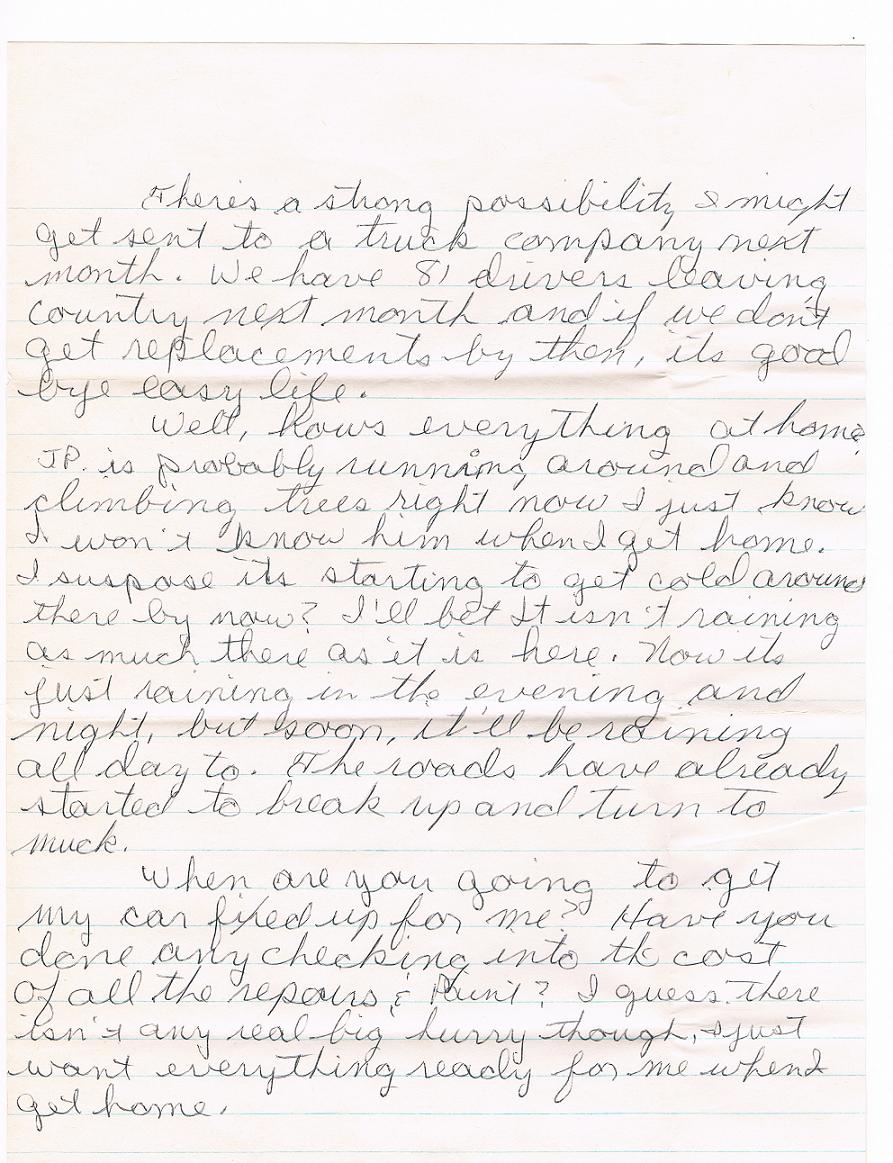 There's a strong possibility I might
get sent to a truck company next
month. We have 81 drivers leaving
country next month and if we don't
get replacements by then, its good
bye easy life.
Well, hows everything at home
J.P. is probably running around and
climbing trees right now I just know
I won't know him when I get home.
I suspose its starting to get cold around
there by now? I'll bet It isn't raining
as much there as it is here. Now its
just raining in the evening and
night, but soon, it'll be raining
all day to. The roads have already
started to break up and turn to
muck.
When are you going to get
my car fixed up for me? Have you
done any checking into the cost
of all the repairs & Paint? I guess there
isn't any real big hurry though, I just
want everything ready for me when I
get home.